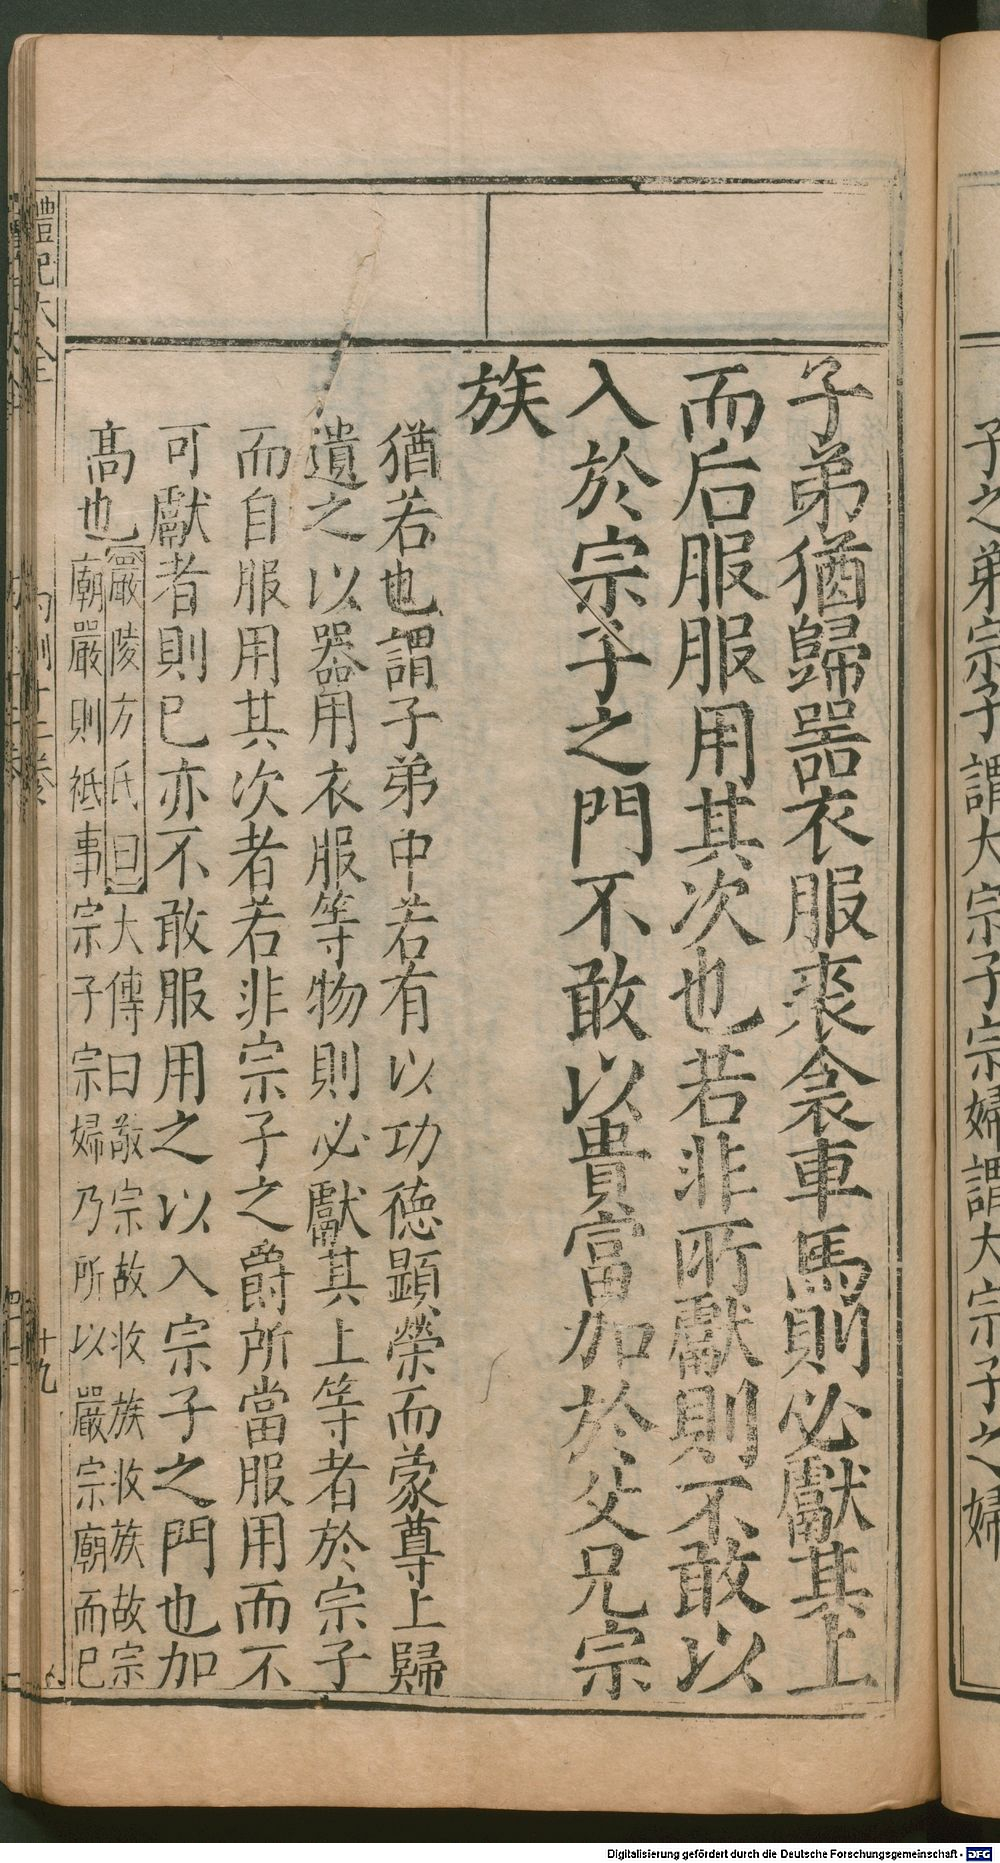 子之弟宗子謂大宗子宗婦謂大宗子之婦
子弟猶歸器衣服裘衾車馬則必獻其上
而后服服用其次也若非所獻則不敢以
入於宗子之門不敢以貴富加於父兄宗
族
猶若也謂子弟中若有以功德顯榮而蒙尊上歸
遺之以器用衣服等物則必獻其上等者於宗子
而自服用其次者若非宗子之爵所當服用而不
可獻者則已亦不敢服用之以入宗子之門也加
高也
嚴陵方氏曰大傳曰敬宗故收族收族故宗
廟嚴則祗事宗子宗婦乃所以嚴宗廟而已
禮記大全
內則十二卷
十九
Digitalisierung gefördert durch die Deutsche Forschungsgemeinschaft - DFG